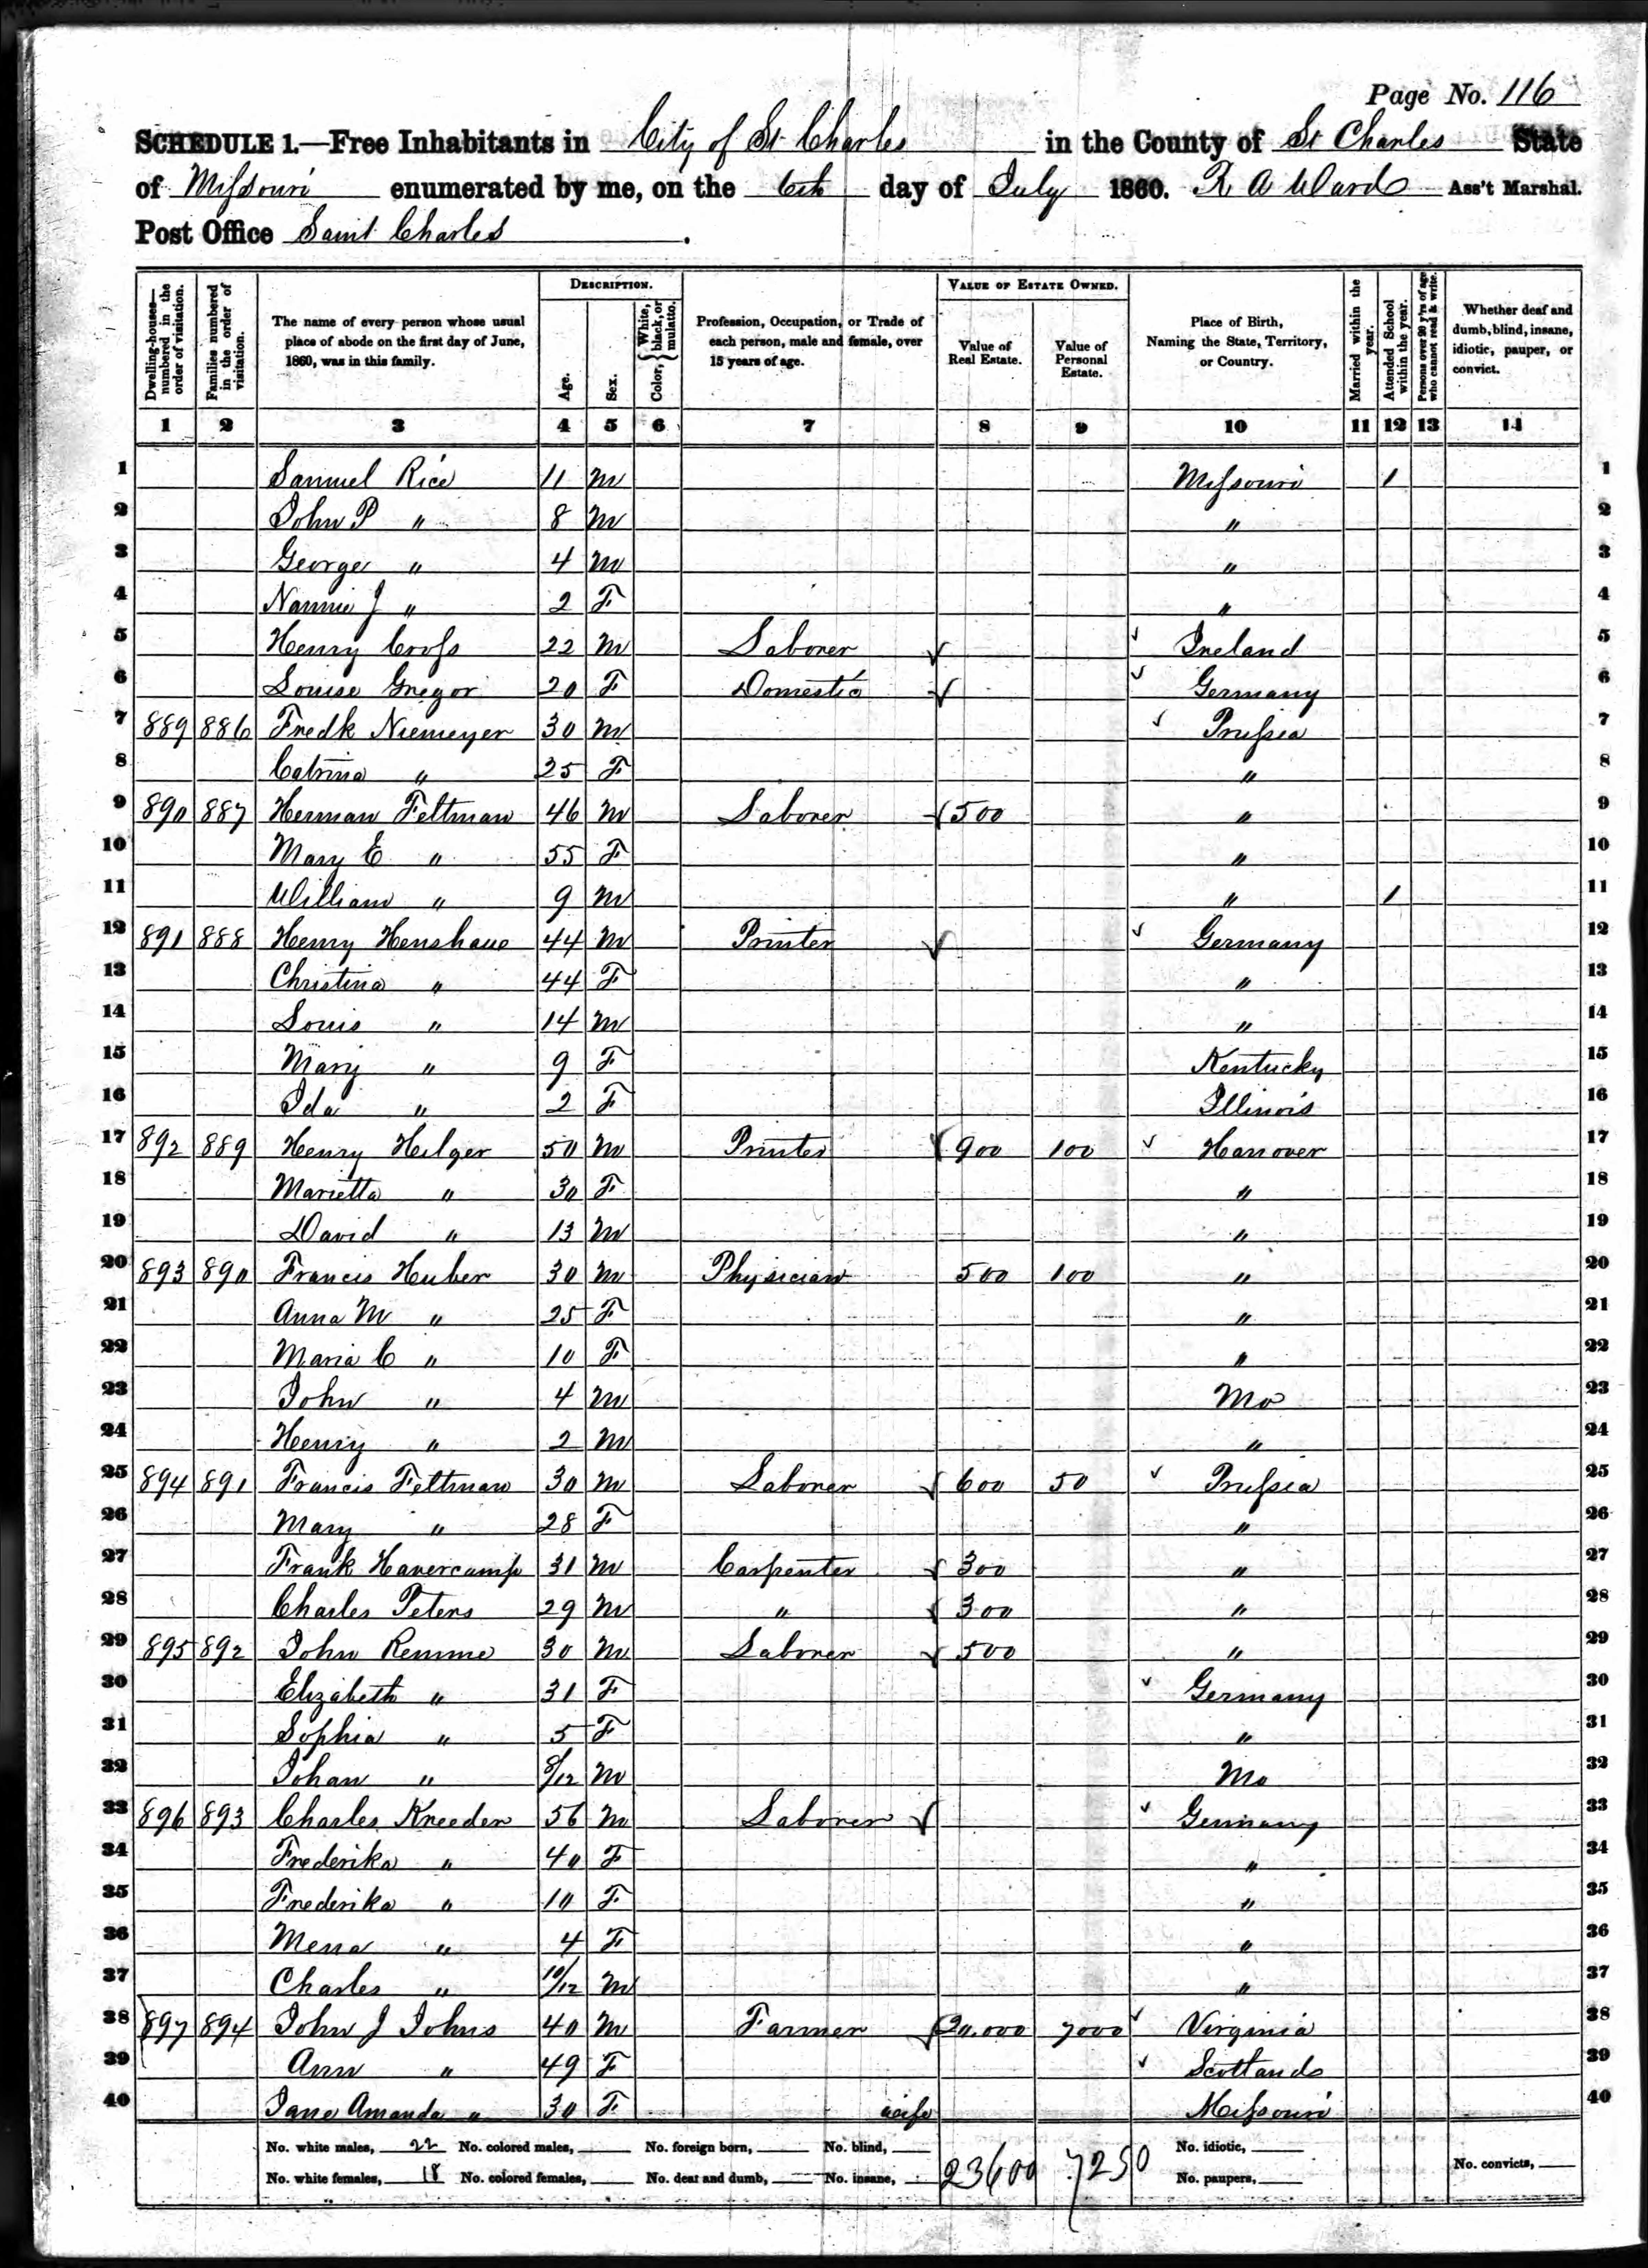 Page No. 116
SCHEDULE 1.—Free Inhabitants in City of St Charles in the County of St Charles State
of Missouri enumerated by me, on the 6th day of July 1860. R A Ward Ass't Marshal.
Post Office Saint Charles.
Dwelling-houses—numbered in the order of visitation.
Families numbered in the order of visitation.
The name of every person whose usual place of abode on the first day of June, 1860, was in this family.
DESCRIPTION.
Age.
Sex.
Color, { White, black, or mulatto.
Profession, Occupation, or Trade of each person, male and female, over 15 years of age.
VALUE OF ESTATE OWNED.
Value of Real Estate.
Value of Personal Estate.
Place of Birth, Naming the State, Territory, or Country.
Married within the year.
Attended School within the year.
Persons over 20 y'rs of age who cannot read & write.
Whether deaf and dumb, blind, insane, idiotic, pauper, or convict.
1 2 3 4 5 6 7 8 9 10 11 12 13 14
1 Samuel Rice 11 M Missouri 1 1
2 John P " 8 M " 2
3 George " 4 M " 3
4 Nannie J " 2 F " 4
5 Henry Cross 22 M Laborer Ireland 5
6 Louise Gregor 20 F Domestic Germany 6
7 889 886 Fredk Niemeyer 30 M Prussia 7
8 Catrina " 25 F " 8
9 890 887 Herman Feltman 46 M Laborer 500 " 9
10 Mary E " 55 F " 10
11 William " 9 M " 1 11
12 891 888 Henry Henshaue 44 M Printer Germany 12
13 Christina " 44 F " 13
14 Louis " 14 M " 14
15 Mary " 9 F Kentucky 15
16 Ida " 2 F Illinois 16
17 892 889 Henry Hilger 50 M Printer 900 100 Hanover 17
18 Marietta " 30 F " 18
19 David " 13 M " 19
20 893 890 Francis Huber 30 M Physician 500 100 " 20
21 Anna M " 25 F " 21
22 Maria C " 10 F " 22
23 John " 4 M Mo 23
24 Henry " 2 M " 24
25 894 891 Francis Feltman 30 M Laborer 600 50 Prussia 25
26 Mary " 28 F " 26
27 Frank Havercamp 31 M Carpenter 300 " 27
28 Charles Peters 29 M " 300 " 28
29 895 892 John Remme 30 M Laborer 500 " 29
30 Elizabeth " 31 F Germany 30
31 Sophia " 5 F " 31
32 Johan " 8/12 M Mo 32
33 896 893 Charles Kreeder 56 M Laborer Germany 33
34 Frederika " 40 F " 34
35 Frederika " 10 F " 35
36 Mena " 4 F " 36
37 Charles " 10/12 M " 37
38 897 894 John J Johns 40 M Farmer 20.000 7000 Virginia 38
39 Ann " 49 F Scotland 39
40 Jane Amanda " 30 F wife Missouri 40
No. white males, 22 No. colored males, No. foreign born, No. blind, 23600 7250 No. idiotic,
No. white females, 18 No. colored females, No. deaf and dumb, No. insane, No. paupers, No. convicts,